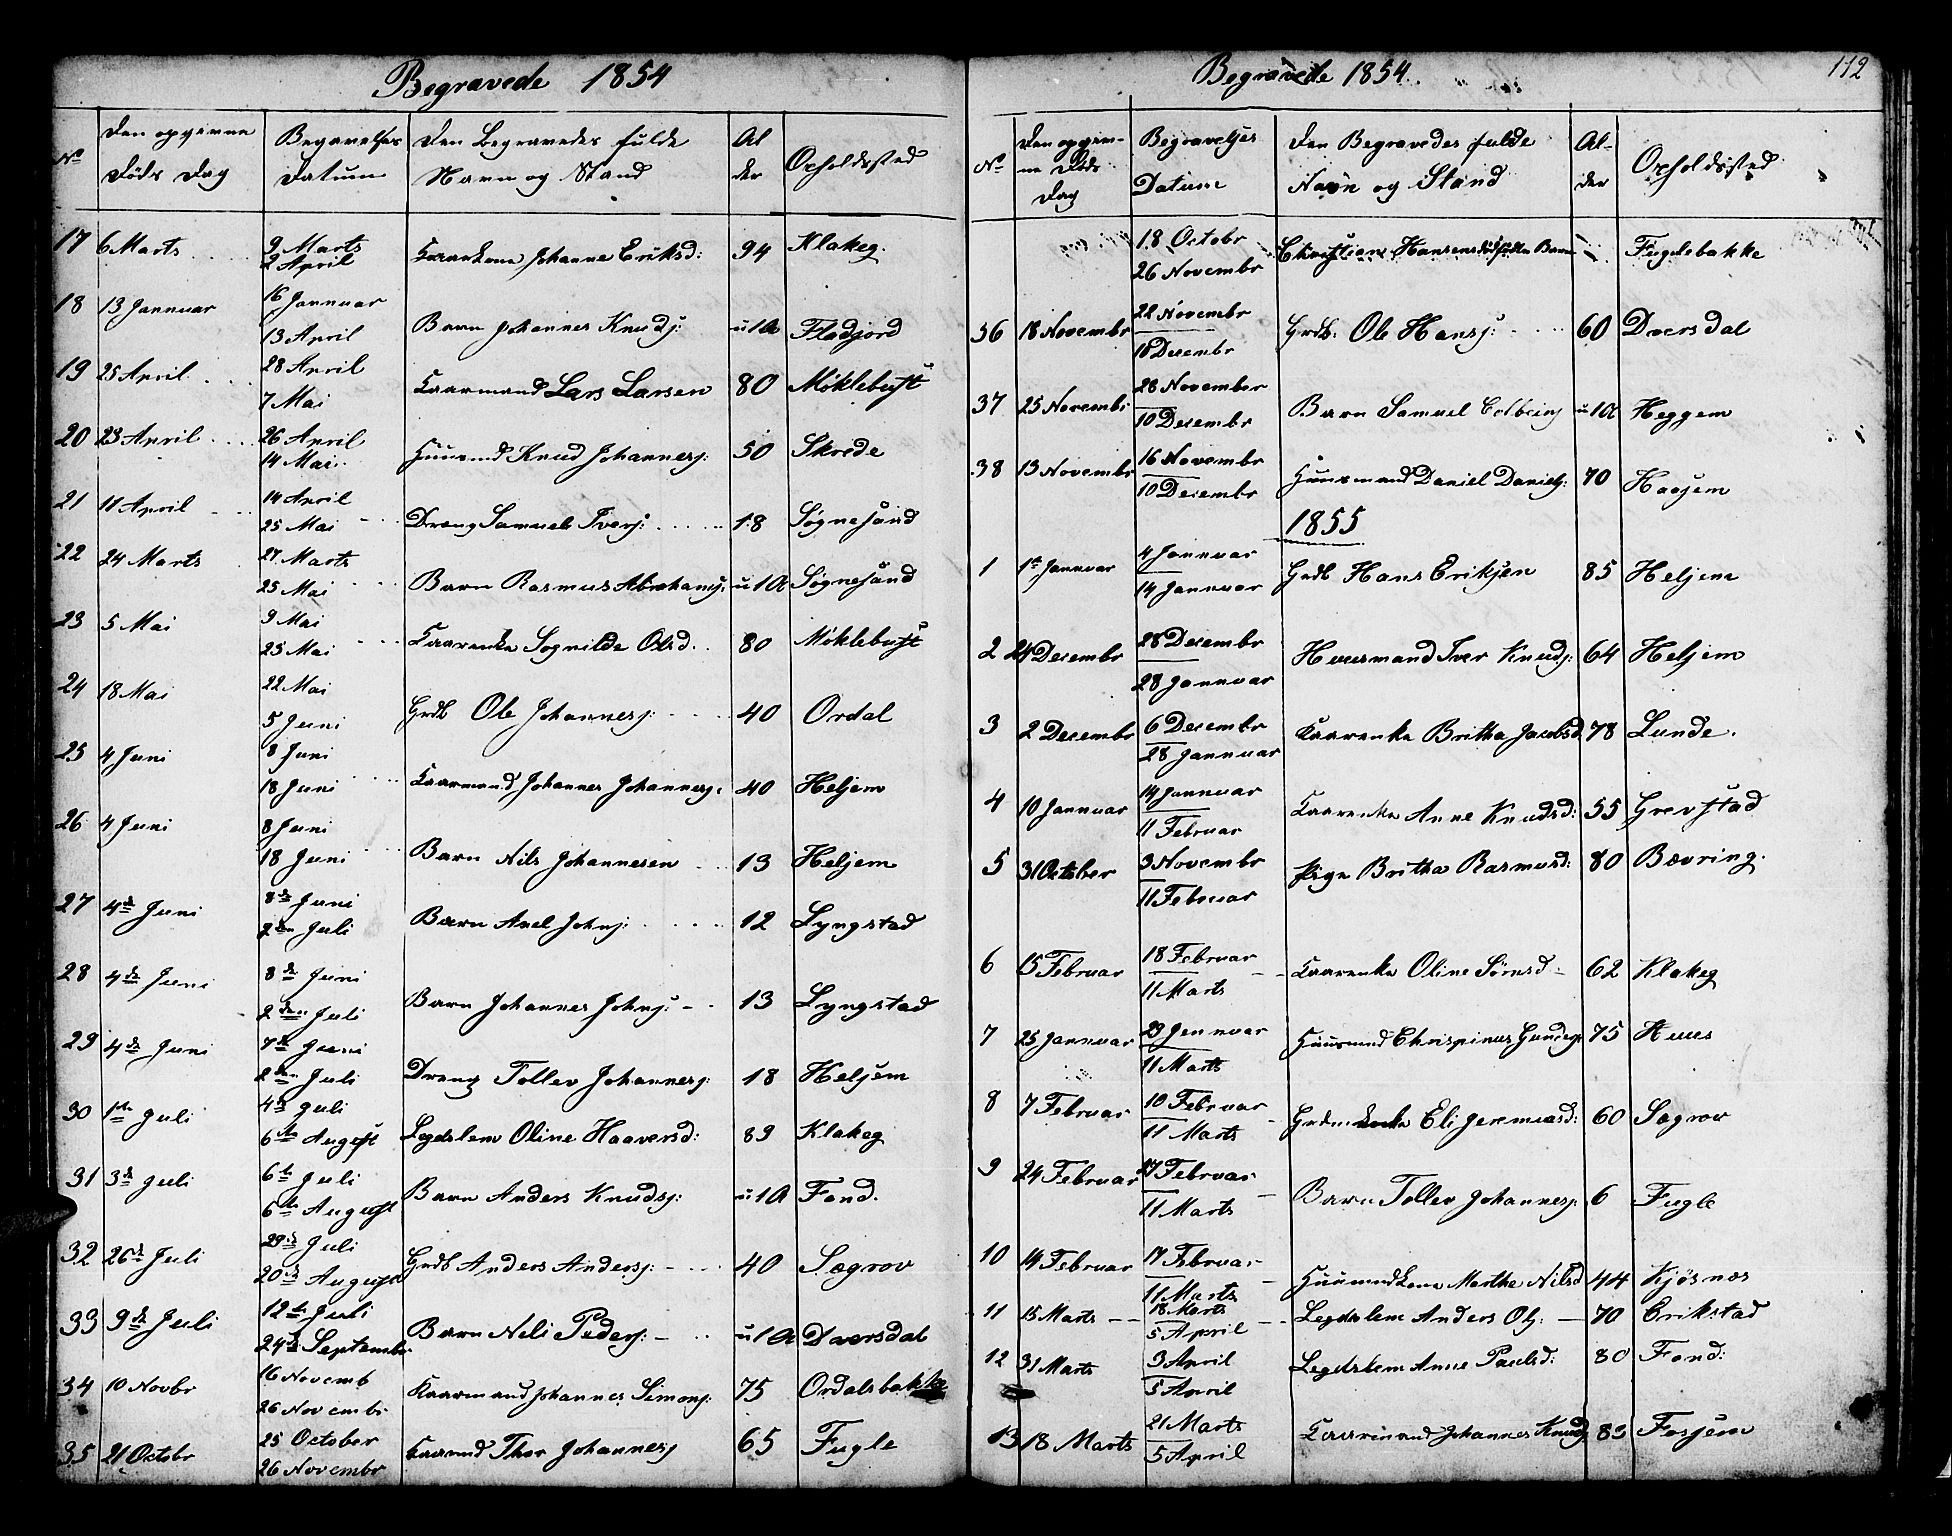 Begravede 1854
No
Den opgivne Døds Dag
Begravelses Datum
Den Begravedes fulde Navn og Stand
Alder
Opholdssted
17 6 Marts 9 Marts 2 April Kaarkone Johanne Eriksd: 94 Klakeg.
18 13 Januar 16 Januar 13 April Barn Johannes Knudsj: u 1 A Fladjord
19 25 April 28 April 7 Mai Kaarmand Lars Larsen 80 Møklebust
20 23 April 26 April 14 Mai Huusmd Knud Johannesj: 50 Skrede
21 11 April 14 April 25 Mai Dreng Samuel Iversj: 18 Søgnesand
22 24 Marts 27 Marts 25 Mai Barn Rasmus Abrahamsj: u 1 A Søgnesand
23 5 Mai 9 Mai 25 Mai Kaarenke Sognilde Olsd. 80 Møklebust
24 18 Mai 22 Mai 5 Juni Grdb Ole Johannesj: 40 Ordal
25 4 Juni 8 Juni 18 Juni Kaarmand Johannes Johannesj: 40 Heljem
26 4 Juni 8 Juni 18 Juni Barn Nils Johannesen 13 Heljem
27 4de Juni 8de Juni 2den Juli Barn Axel Johnsj: 12 Lyngstad
28 4de Juni 8de Juni 2den Juli Barn Johannes Johnsj: 13 Lyngstad
29 4de Juni 7de Juni 2den Juli Dreng Tollev Johannesj: 18 Heljem
30 1ste Juli 4de Juli 6te August Legdslem Oline Haaversd: 89 Klakeg
31 3de Juli 6te Juli 6te August Barn Anders Knudsj: u 1 A Fond.
32 26de Juli 29de Juli 20de August Grdb Anders Andersj: 40 Søgrov
33 9de Juli 12te Juli 24de Septembr Barn Neli Pedersj: u 1 A Dversdal
34 10 Novbr 16 Novemb 26 Novembr Kaarmand Johannes Simonsj: 75 Ordalsbakke
35 21 Octobr 25 October 26 Novembr Kaarmd Thor Johannesj 65 Fugle
Begravede 1854.
112
No
Den opgivne Døds Dag
Begravelses Datum
Den Begravedes fulde Navn og Stand
Alder
Opholdssted
18 Octobr 26 Novembr Christian Hansens dødfødte Barn Fuglebakke
36 18 Novembr 22 Novembr 10 Decembr Grdb. Ole Hansj: 60 Dversdal
37 25 Novembr 28 November 10 Decembr Barn Samuel Colbeinsj u 1 A Heggem
38 13 Novembr 16 Novembr 10 Decembr Huusmand Daniel Danielsj: 70 Haasem
1855
1 1ste Januar 4 Januar 14 Januar Grdb Hans Eriksen 85 Heljem
2 24 Decembr 28 Decembr 28 Januar Huusmand Iver Knudsj: 64 Heljem
3 2 Decembr 6 Decembr 28 Januar Kaarenke Britha Jacobsd 78 Lunde.
4 10 Januar 14 Januar 11 Februar Kaarenke Anne Knudsd: 55 Grevstad
5 31 October 3 Novembr 11 Februar Pige Britha Rasmusd: 80 Bævring.
6 15 Februar 18 Februar 11 Marts Kaarenke Oline Sørensd 62 Klakeg
7 25 Januar 29 Januar 11 Marts Huusmand Chrispinus Gundersj 75 Huus
8 7 Februar 10 Februar 11 Marts Grdmdenke Eli Jeremiasd: 60 Søgrov
9 24 Februar 27 Februar 11 Marts Barn Tollev Johannesj: 6 Fugle
10 14 Februar 17 Februar 11 Marts Huusmandkone Marthe Nilsd 44 Kjøsnæs
11 15 Marts 18 Marts 5 April Legdslem Anders Olsj: 70 Erikstad
12 31 Marts 3 April 5 April Legdslem Anne Paulsd: 80 Fond:
13 18 Marts 21 Marts 5 April Kaarmand Johannes Knudsj 83 Fosjem